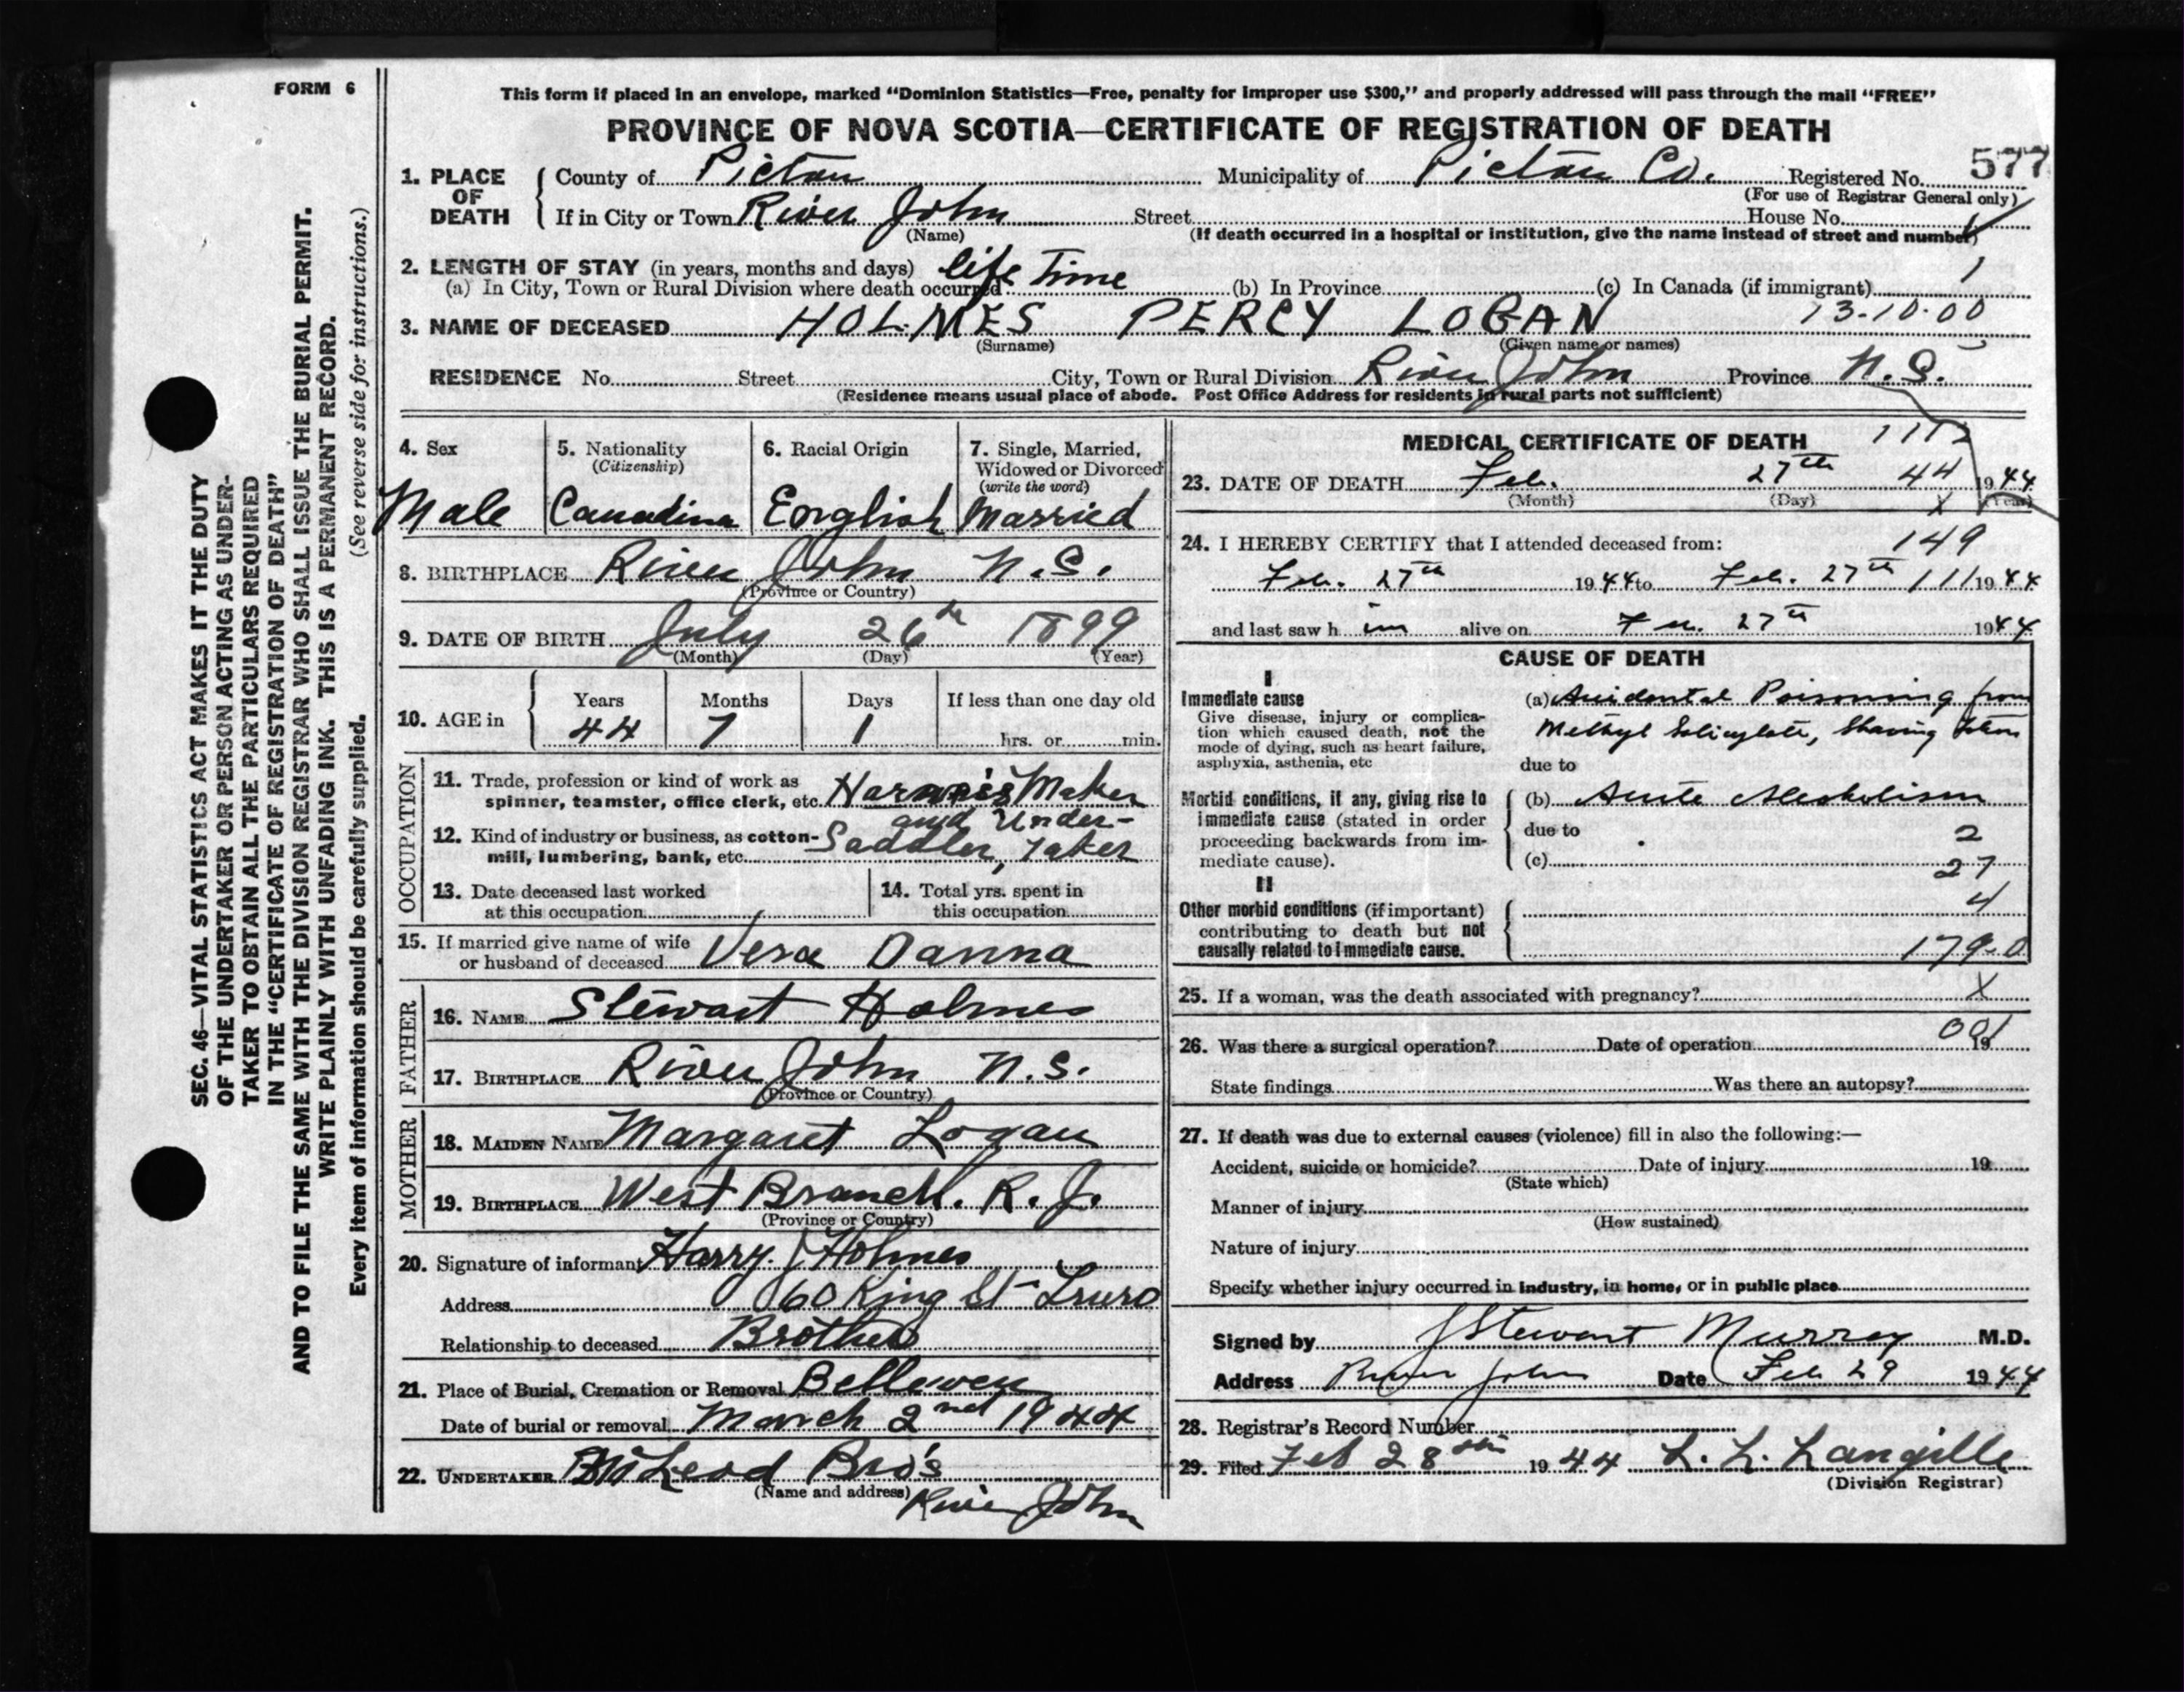 FORM 6
This form if placed in an envelope, marked "Dominion Statistics—Free, penalty for improper use $300," and properly addressed will pass through the mail "FREE"
PROVINCE OF NOVA SCOTIA—CERTIFICATE OF REGISTRATION OF DEATH
577
1. PLACE OF DEATH
County of Pictou Municipality of Pictou Co. Registered No.
(For use of Registrar General only)
If in City or Town River John Street House No.
(Name) (If death occurred in a hospital or institution, give the name instead of street and number)
2. LENGTH OF STAY (in years, months and days) life Time 1
(a) In City, Town or Rural Division where death occurred (b) In Province (c) In Canada (if immigrant)
3. NAME OF DECEASED HOLMES PERCY LOGAN 13-10-00
(Surname) (Given name or names)
RESIDENCE No. Street City, Town or Rural Division River John Province N.S.
(Residence means usual place of abode. Post Office Address for residents in rural parts not sufficient)
4. Sex
Male
5. Nationality
(Citizenship)
Canadian
6. Racial Origin
English
7. Single, Married,
Widowed or Divorced
(write the word)
Married
8. BIRTHPLACE River John N.S.
(Province or Country)
9. DATE OF BIRTH July 26th 1899
(Month) (Day) (Year)
10. AGE in
Years Months Days If less than one day old
44 7 1 hrs. or min.
OCCUPATION
11. Trade, profession or kind of work as
spinner, teamster, office clerk, etc. Harness Maker
and Under-
12. Kind of industry or business, as cotton-
mill, lumbering, bank, etc. Saddler, taker
13. Date deceased last worked
at this occupation
14. Total yrs. spent in
this occupation
15. If married give name of wife
or husband of deceased Vera Danna
FATHER
16. NAME Stewart Holmes
17. BIRTHPLACE River John N.S.
(Province or Country)
MOTHER
18. MAIDEN NAME Margaret Logan
19. BIRTHPLACE West Branch. R. J.
(Province or Country)
20. Signature of informant Harry J Holmes
Address 60 King St Truro
Relationship to deceased Brother
21. Place of Burial, Cremation or Removal
Date of burial or removal March 2nd 1944
22. UNDERTAKER McLeod Bro's
(Name and address) River John
MEDICAL CERTIFICATE OF DEATH 1112
23. DATE OF DEATH Feb. 27th 44 1944
(Month) (Day) X (Year)
24. I HEREBY CERTIFY that I attended deceased from: 149
Feb. 27th 1944 to Feb. 27th 111 1944
and last saw him alive on Feb. 27th 1944
CAUSE OF DEATH
I
Immediate cause
Give disease, injury or complica-
tion which caused death, not the
mode of dying, such as heart failure,
asphyxia, asthenia, etc
(a) Accidental Poisoning from
Methyl Salicylate, Shaving lotion
due to
Morbid conditions, if any, giving rise to
immediate cause (stated in order
proceeding backwards from im-
mediate cause).
(b) Acute Alcoholism
due to 2
(c) 27
II
Other morbid conditions (if important)
contributing to death but not
causally related to immediate cause.
4
179-0
25. If a woman, was the death associated with pregnancy? X
001
26. Was there a surgical operation? Date of operation 19
State findings Was there an autopsy?
27. If death was due to external causes (violence) fill in also the following:—
Accident, suicide or homicide? Date of injury 19
(State which)
Manner of injury
(How sustained)
Nature of injury
Specify whether injury occurred in industry, in home, or in public place
Signed by J Stewart Murray M.D.
Address River John Date Feb 29 1944
28. Registrar's Record Number
29. Filed Feb 28th 1944 L. L. Langille
(Division Registrar)
SEC. 46—VITAL STATISTICS ACT MAKES IT THE DUTY
OF THE UNDERTAKER OR PERSON ACTING AS UNDER-
TAKER TO OBTAIN ALL THE PARTICULARS REQUIRED
IN THE "CERTIFICATE OF REGISTRATION OF DEATH"
AND TO FILE THE SAME WITH THE DIVISION REGISTRAR WHO SHALL ISSUE THE BURIAL PERMIT.
WRITE PLAINLY WITH UNFADING INK. THIS IS A PERMANENT RECORD.
Every item of information should be carefully supplied. (See reverse side for instructions.)